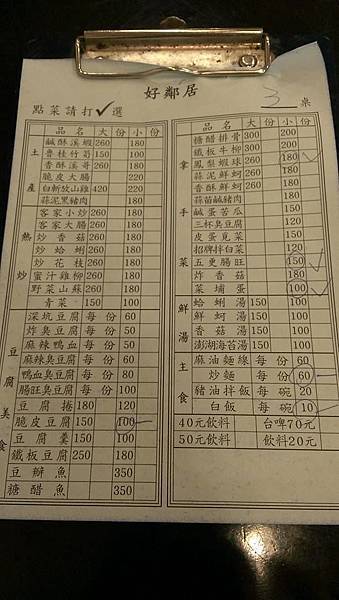 好鄰居
點菜請打✓選
3桌
品名 大 份 小 份
土產
鹹酥溪蝦 260 180
魯桂竹筍 150 100
香酥溪哥 260 180
脆皮大腸 220
白斬放山雞 420 220
蒜泥黑豬肉 180
熱炒
客家小炒 260 180
客家大腸 260 180
炒香菇 260 180
炒蛤蜊 260 180
炒花枝 260 180
蜜汁雞柳 260 180
野菜山蘇 260 180
青菜 150 100
豆腐美食
深坑豆腐 每份 60
炸臭豆腐 每份 50
麻辣鴨血 每份 50
麻辣臭豆腐 每份 60
鴨血臭豆腐 每份 80
腸旺臭豆腐 每份 100
豆腐捲 180 120
脆皮豆腐 150 100
豆腐羹 150 100
鐵板豆腐 250 180
豆瓣魚 350
糖醋魚 350
品名 大 份 小 份
拿手菜
糖醋排骨 300 200
鐵板牛柳 300 200
鳳梨蝦球 260 180 ✓
蒜泥鮮蚵 260 180
香酥鮮蚵 260 180
蒜苗鹹豬肉 180
鹹蛋苦瓜 150
三杯臭豆腐 180
皮蛋莧菜 180
招牌拌白菜 120
五更腸旺 150 ✓
炸香菇 180
菜埔蛋 100 ✓
鮮湯
蛤蜊湯 150 100
鮮蚵湯 150 100
香菇湯 150 100
澎湖海菩湯 150 100
主食
麻油麵線 每份 60
炒麵 每份 60
豬油拌飯 每碗 20
白飯 每碗 10
40元飲料 台啤70元
50元飲料 飲料20元